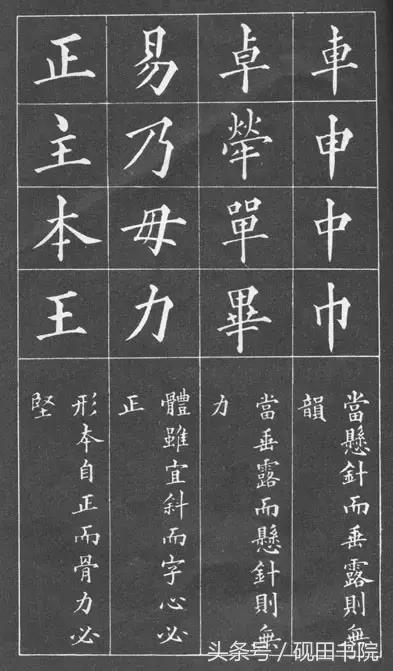 車申中巾
當懸針而垂露則無
韻
卓犖單畢
當垂露而懸針則無
力
易乃毋力
體雖宜斜而字心必
正
正主本王
形本自正而骨力必
堅
头条号/砚田书院